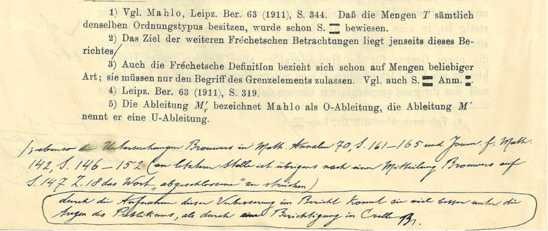 1) Vgl. Mahlo, Leipz. Ber. 63 (1911), S. 344. Daß die Mengen T sämtlich
denselben Ordnungstypus besitzen, wurde schon S. bewiesen.
2) Das Ziel der weiteren Fréchetschen Betrachtungen liegt jenseits dieses Be-
richtes/
3) Auch die Fréchetsche Definition bezieht sich schon auf Mengen beliebiger
Art; sie müssen nur den Begriff des Grenzelements zulassen. Vgl. auch S. Anm.
4) Leipz. Ber. 63 (1911), S. 319.
5) Die Ableitung M' bezeichnet Mahlo als O-Ableitung, die Ableitung M'
nennt er eine U-Ableitung.
Untersuchungen Brouwers in Math. Annalen 70, S. 161–165 und Journ. f. Math.
142, S. 146–152 (an letzterer Stelle ist übrigens nach einer Mitteilung Brouwers auf
S. 147 Z. 18 das Wort „abgeschlossene" zu streichen)
durch die Aufnahme dieser Verbesserung im Bericht kommt sie viel besser unter die
Augen des Publikums, als durch eine Berichtigung in Crelle Br.